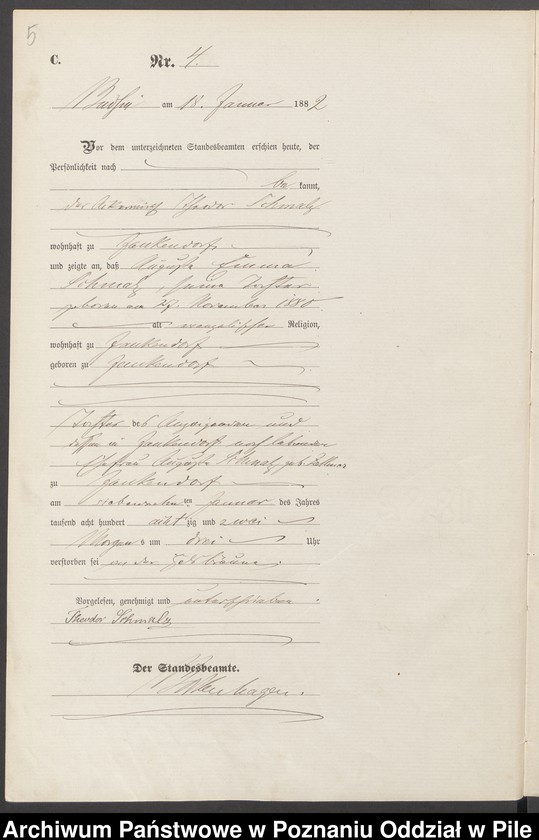 5
C. Nr. 4.
Budsin am 18. Januar 1882
Vor dem unterzeichneten Standesbeamten erschien heute, der
Persönlichkeit nach
be kannt,
der Ackerwirth Theodor Schmalz
wohnhaft zu Jankendorf
und zeigte an, daß Auguste Emma
Schmalz, seine Tochter
geboren am 27. November 1880
alt evangelischer Religion,
wohnhaft zu Jankendorf
geboren zu Jankendorf
Tochter des Anzeigenden und
dessen in Jankendorf noch lebenden
Ehefrau Auguste Schmalz geb.
zu Jankendorf
am siebenzehnten Januar des Jahres
tausend acht hundert achtzig und zwei
Morgens um drei Uhr
verstorben sei an der Halsbräune.
Vorgelesen, genehmigt und unterschrieben
Theodor Schmalz
Der Standesbeamte.
Archiwum Państwowe w Poznaniu Oddział w Pile